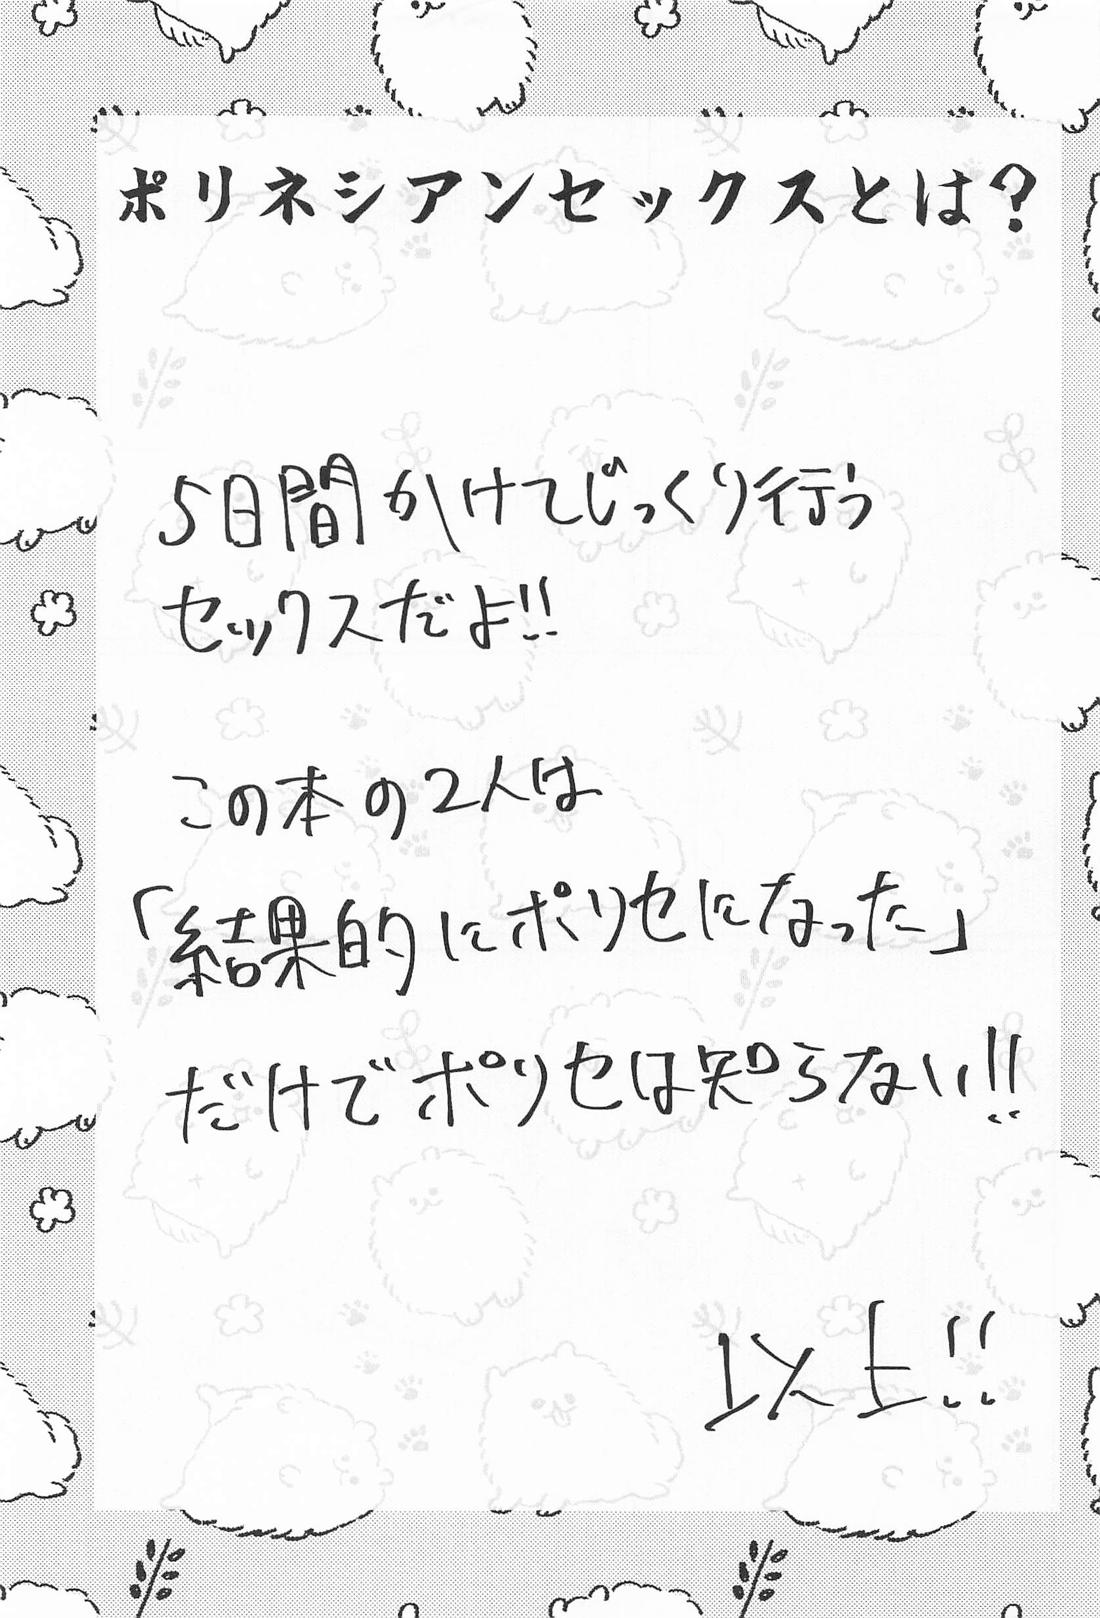 ポリネシアンセックスとは？
5日間かけてじっくり行う
セックスだよ!!
この本の2人は
「結果的にポリセになった」
だけでポリセは知らない!!
以上!!